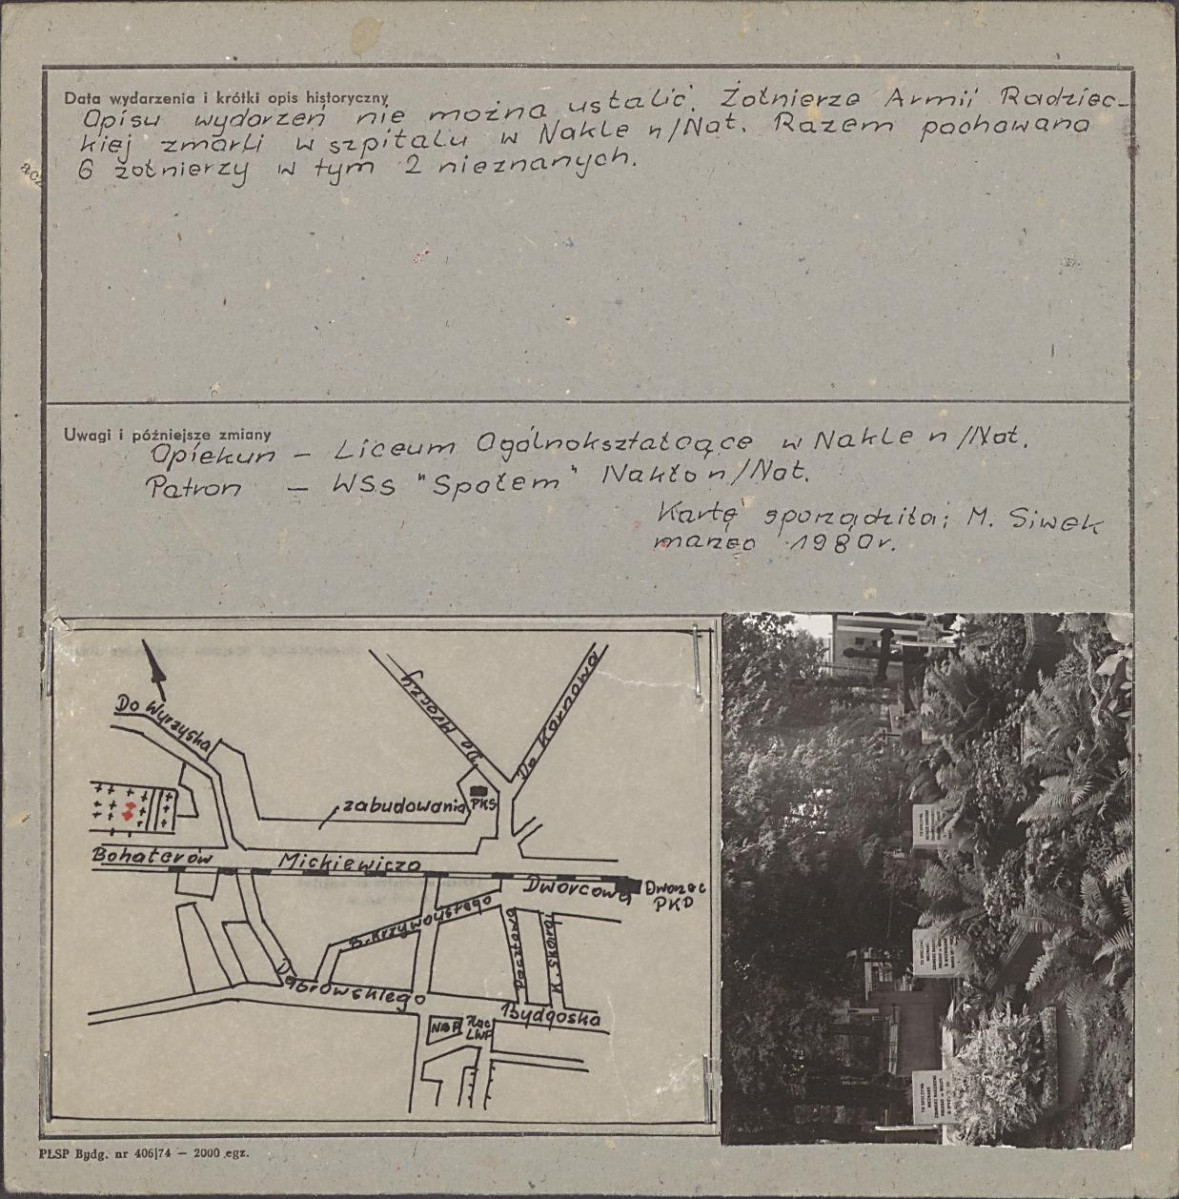 Data wydarzenia i krótki opis historyczny
Opisu wydarzeń nie można ustalić. Żołnierze Armii Radziec-
kiej zmarli w szpitalu w Nakle n/Not. Razem pochowano
6 żołnierzy w tym 2 nieznanych.
Uwagi i późniejsze zmiany
Opiekun – Liceum Ogólnokształcące w Nakle n/Not.
Patron – WSS "Społem" Nakło n/Not.
Kartę sporządziła; M. Siwek
marzec 1980r.
Do Wyrzyska
Do Mroczy
Do Koronowa
zabudowania
PKS
Bohaterów
Mickiewicza
Dworcowa
Dworzec
PKP
B. Krzywoustego
Pocztowa
Dąbrowskiego
Bydgoska
NBP
Plac
LWP
PLSP Bydg. nr 406|74 — 2000 egz.